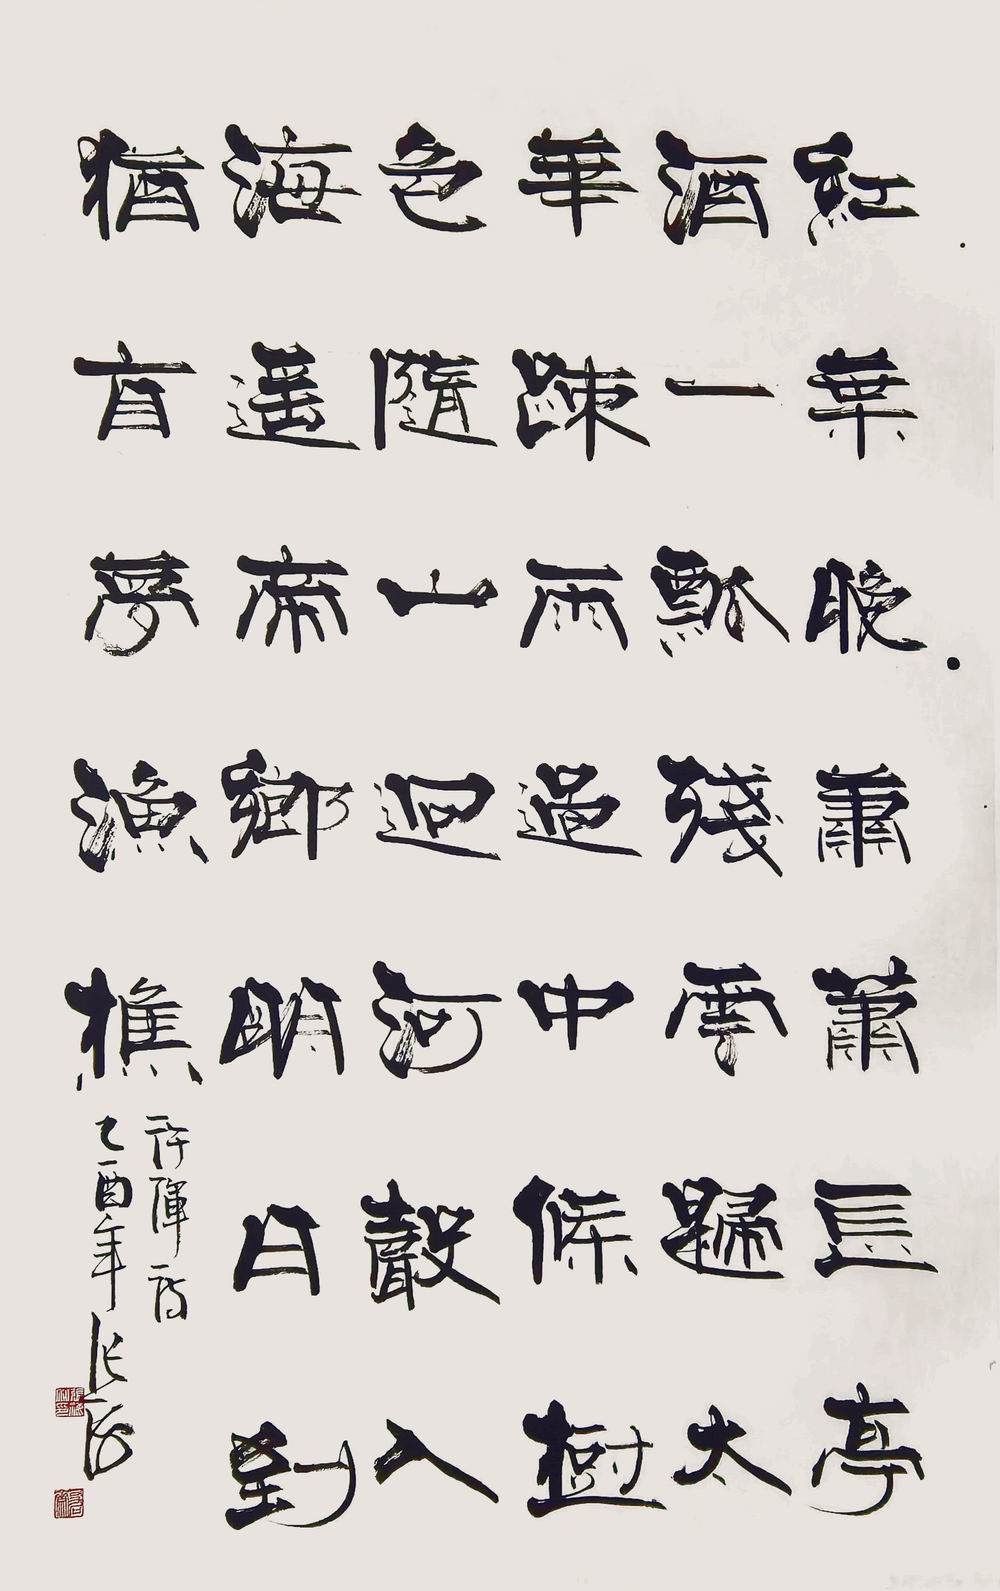 紅葉晚蕭蕭長亭
酒一瓢殘雲歸太
華疎雨過中條樹
色隨山迥河聲入
海遙帝鄉明日到
猶自夢漁樵
許渾詩
乙酉年張海